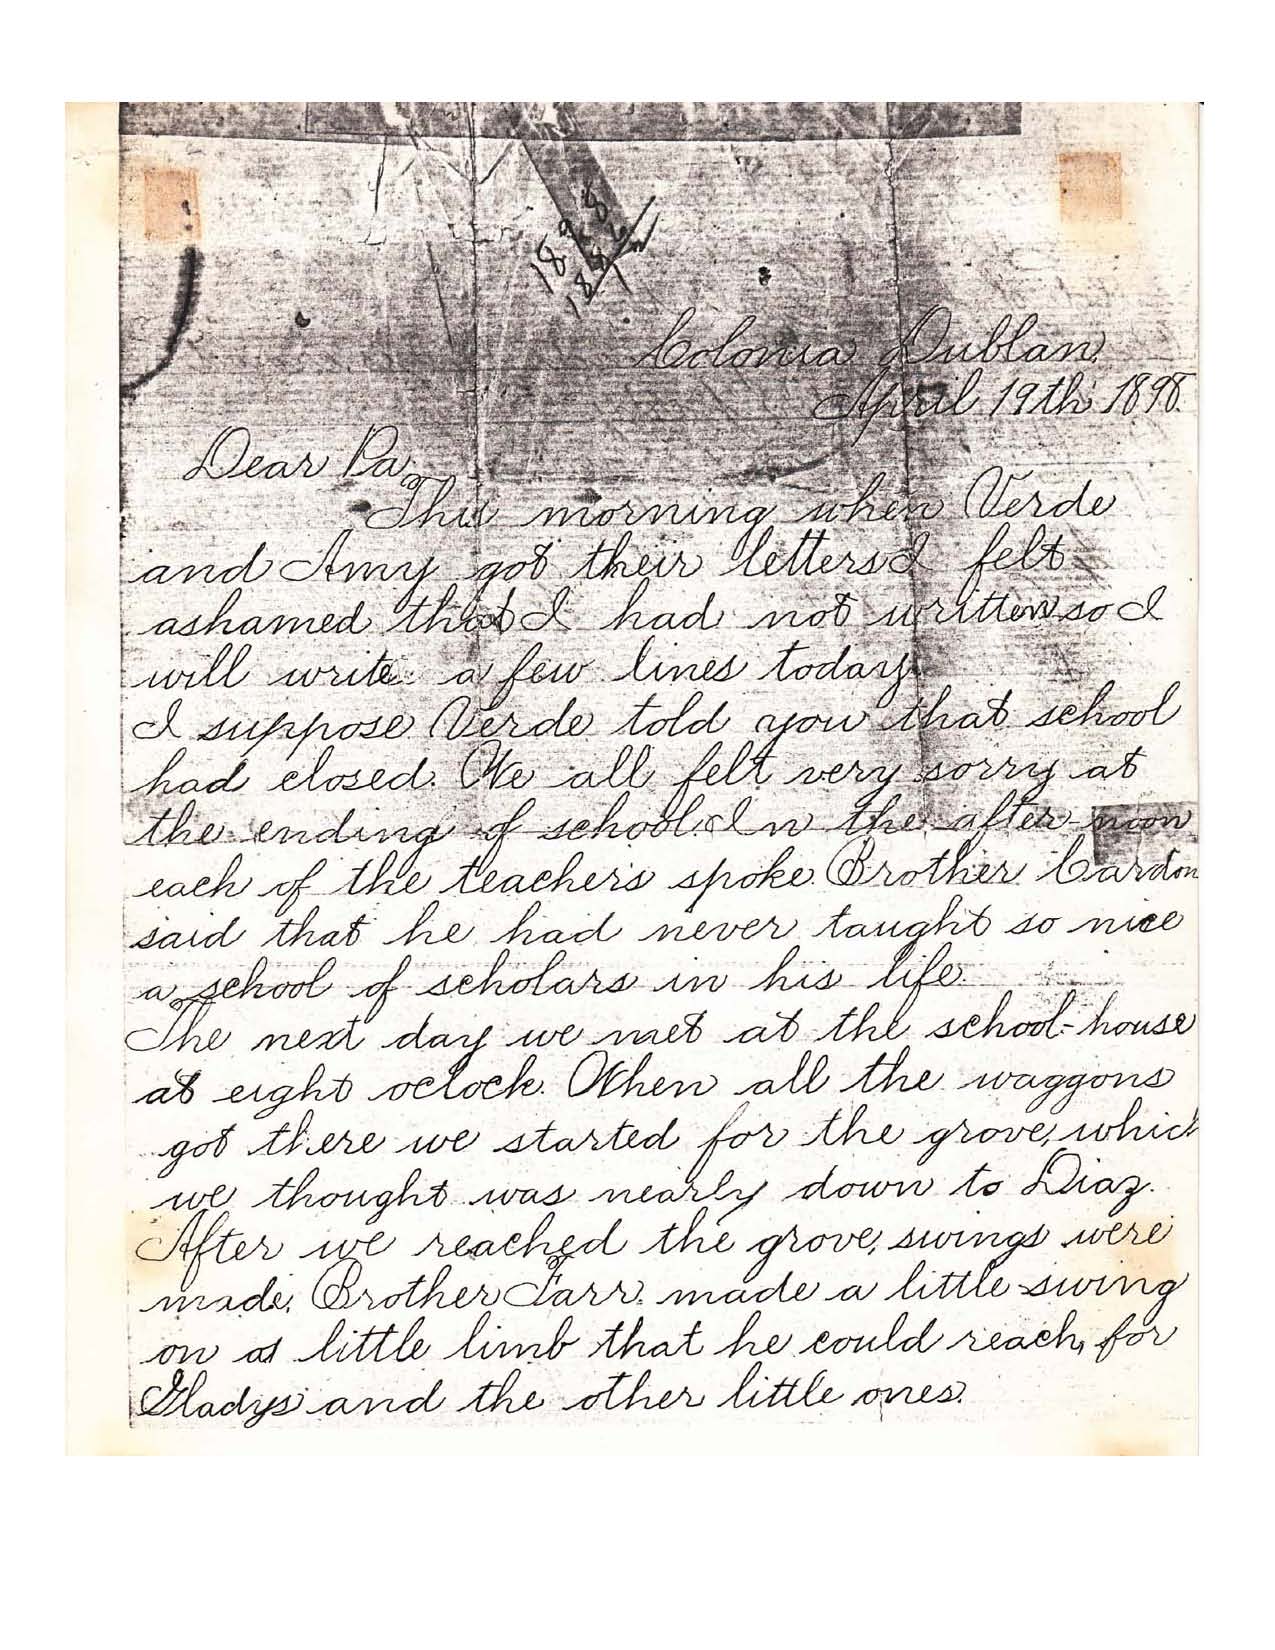 1898
Colonia Dublan,
April 19th 1898.
Dear Pa,
This morning when Verde
and Amy got their letters I felt
ashamed that I had not written so I
will write a few lines today.
I suppose Verde told you that school
had closed. We all felt very sorry at
the ending of school. In the after-noon
each of the teachers spoke. Brother Cardon
said that he had never taught so nice
a school of scholars in his life.
The next day we met at the school-house
at eight oclock. When all the waggons
got there we started for the grove, which
we thought was nearly down to Diaz.
After we reached the grove, swings were
made. Brother Farr made a little swing
on a little limb that he could reach, for
Gladys and the other little ones.